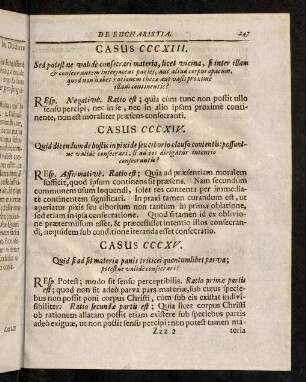 DE EUCHARISTIA. 247
CASUS CCCXIII.
Sed potest ne validè consecrari materia, licet vicina, si inter illam
& consecrantem interponatur paries, aut aliud corpus opacum,
quod non habet rationem thecæ aut vasis proximè
illam continentis?
REsp. Negativè. Ratio est; quia cùm tunc non possit ullo
sensu percipi, nec in se, nec in alio ipsam proximè conti-
nente, non est moraliter præsens consecranti.
CASUS CCCXIV.
Quid dicendum de hostiis in pixide seu ciborio clauso contentis: possunt-
ne validè consecrari, si ad eas dirigatur intentio
consecrantis?
REsp. Affirmativè. Ratio est; Quia ad præsentiam moralem
sufficit, quod ipsum continens sit præsens. Nam secundum
communem usum loquendi, solet res contenta per immedia-
tè continentem significari. In praxi tamen curandum est, ut
aperiatur pixis seu ciborium non tantùm in prima oblatione,
sed etiam in ipsa consecratione. Quod si tamen id ex oblivio-
ne prætermissum esset, & præcessisset intentio illos consecran-
di, nequidem sub conditione iteranda esset consecratio.
CASUS CCCXV.
Quid si ad sit materia panis triticei quantumlibet parva;
potestne validè consecrari?
REsp. Potest; modo sit sensu perceptibilis. Ratio prima partis
est; quod non sit adeò parva pars materiæ, sub cujus specie-
bus non possit poni corpus Christi, cùm sub eis existat indivi-
sibiliter: Ratio secundæ partis est: Quia licet corpus Christi
ob rationem allatam possit etiam existere sub speciebus partis
adeò exiguæ, ut non possit sensu percipi: non potest tamen ma-
Zzz 2 teria